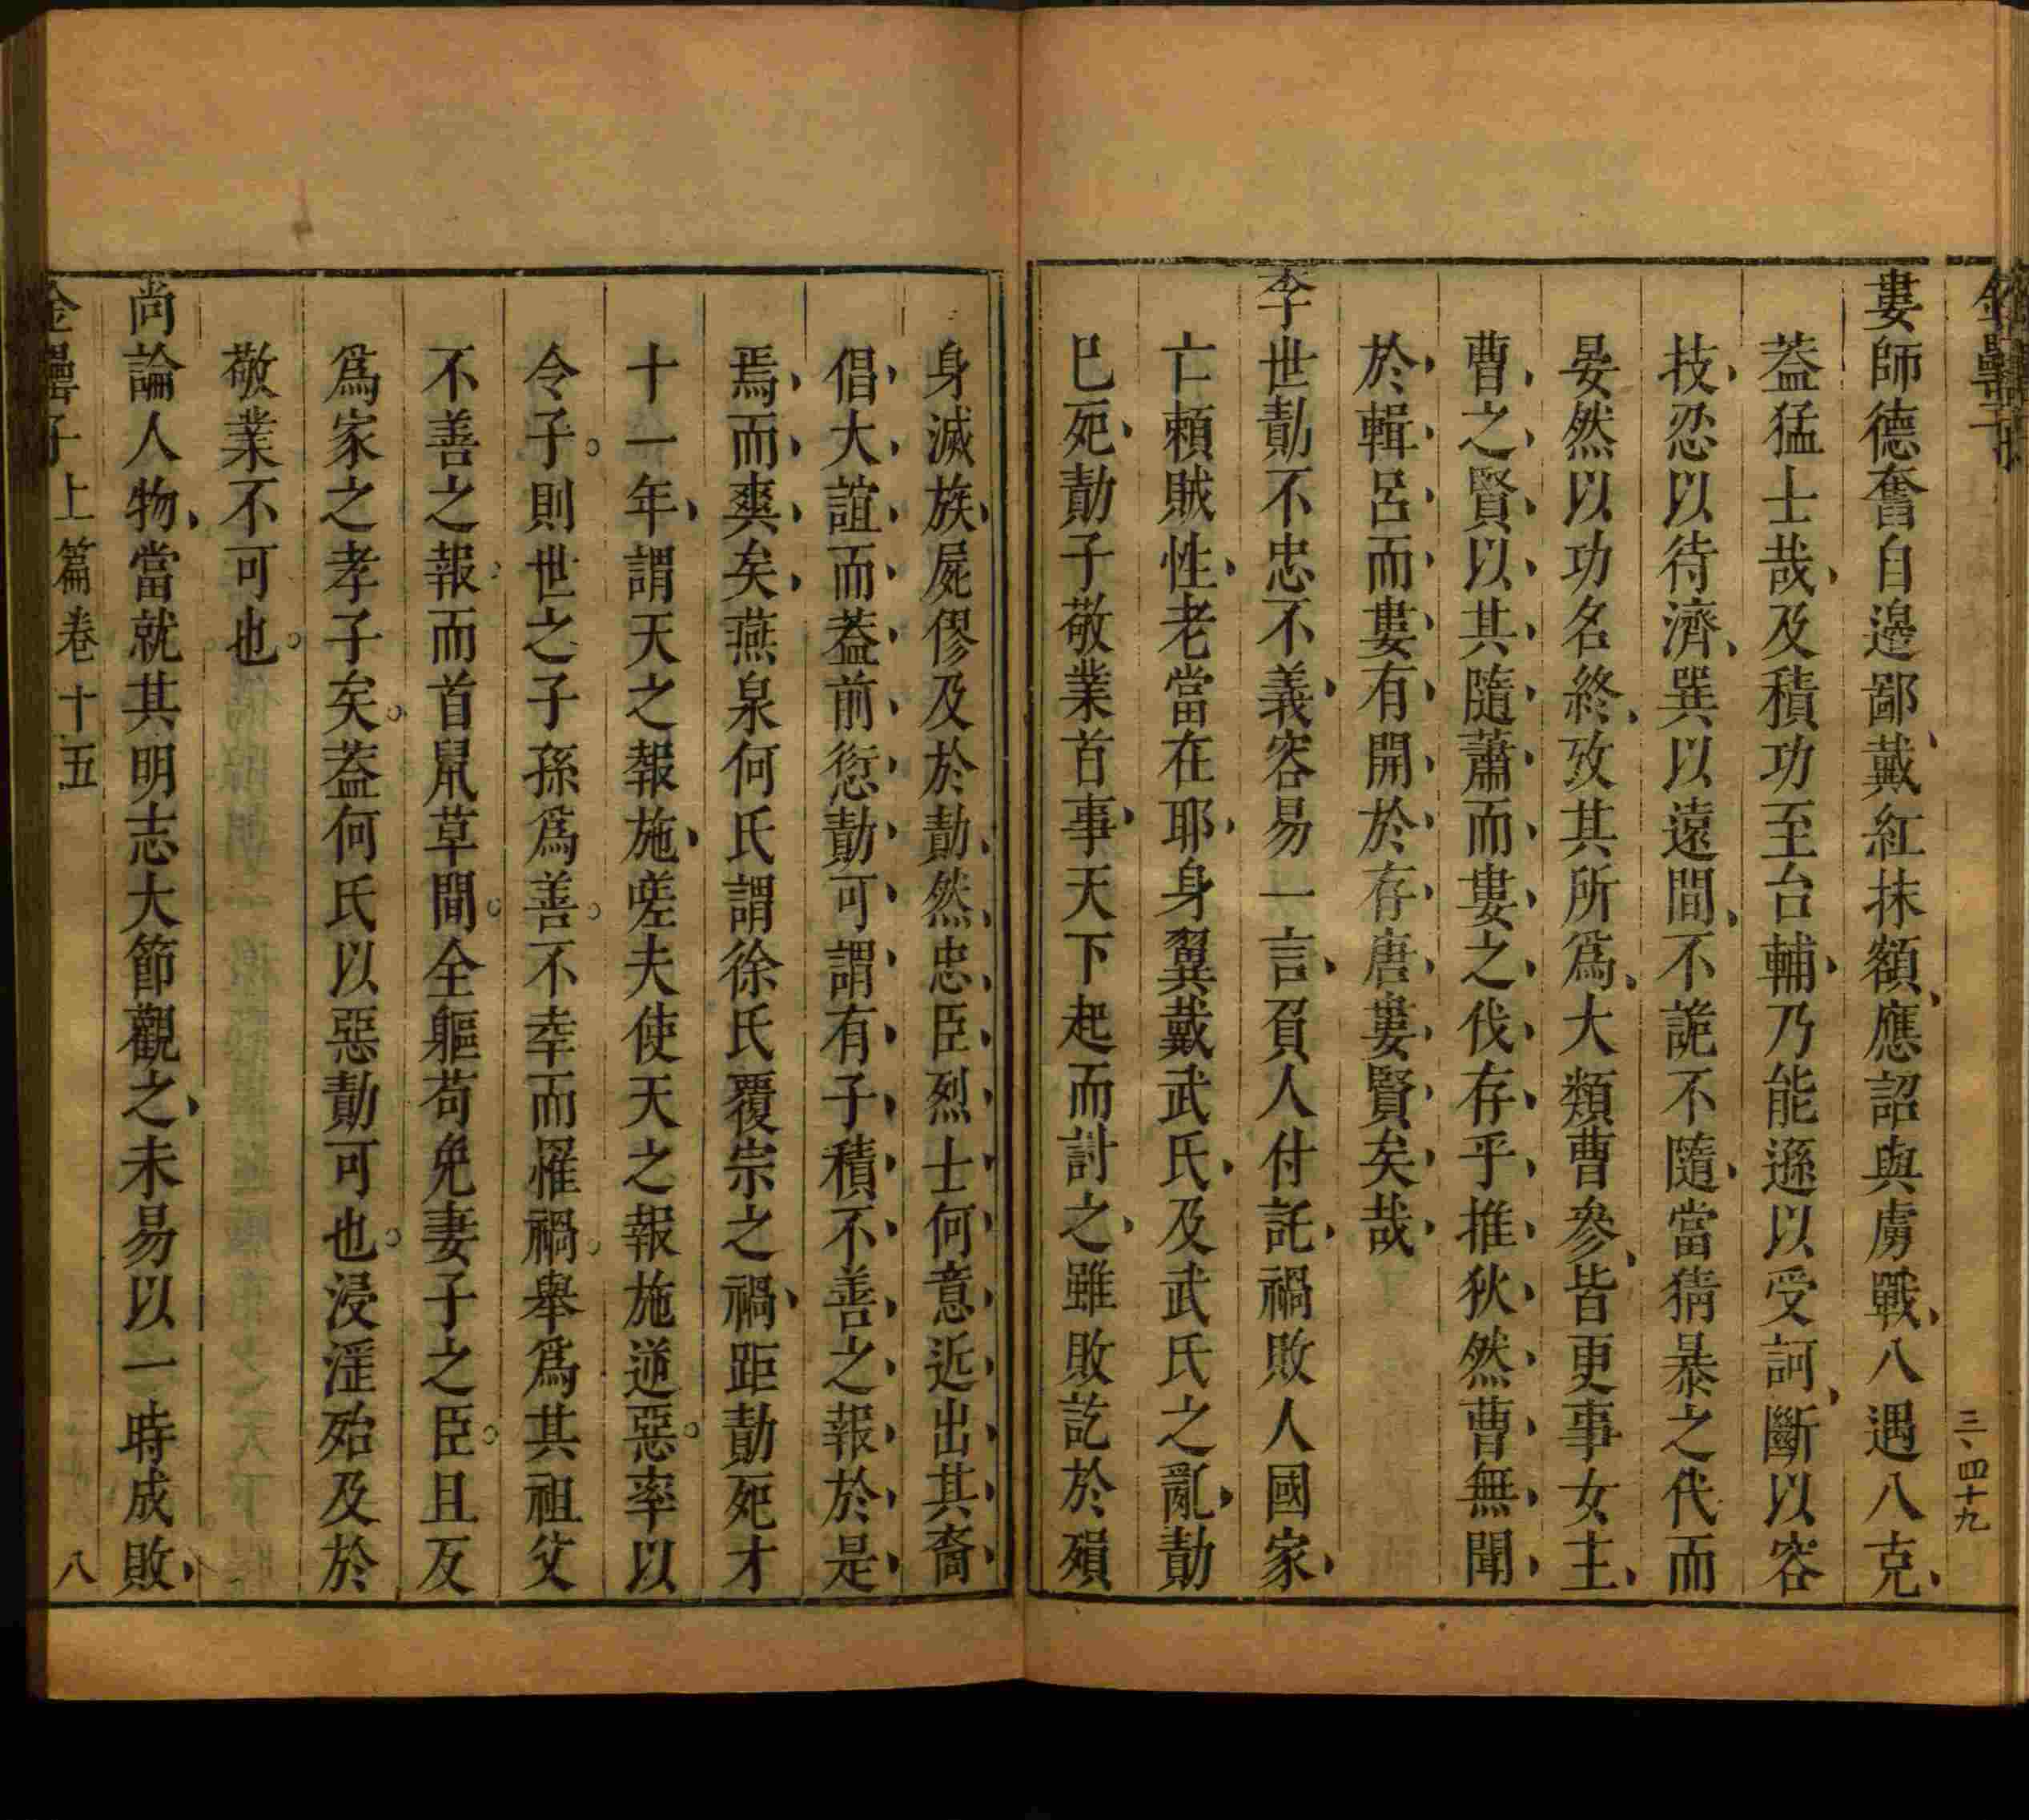 金罍子
三、四十九
婁師德奮自邊鄙戴紅抹額應詔與虜戰八遇八克
葢猛士哉及積功至台輔乃能遜以受訶斷以容
技忍以待濟巽以遠間不詭不隨當猜暴之代而
晏然以功名終攷其所爲大類曹參皆更事女主
曹之賢以其隨蕭而婁之伐存乎推狄然曹無聞
於輯呂而婁有開於存唐婁賢矣哉
李世勣不忠不義容易一言負人付託禍敗人國家
亡賴賊性老當在耶身翼戴武氏及武氏之亂勣
巳死勣子敬業首事天下起而討之雖敗訖於殞
身滅族屍僇及於勣然忠臣烈士何意近出其裔
倡大誼而葢前愆勣可謂有子積不善之報於是
焉而爽矣燕泉何氏謂徐氏覆宗之禍距勣死才
十一年謂天之報施嗟夫使天之報施逆惡率以
令子則世之子孫爲善不幸而罹禍舉爲其祖父
不善之報而首鼠草間全軀苟免妻子之臣且反
爲家之孝子矣葢何氏以惡勣可也浸淫殆及於
敬業不可也
尚論人物當就其明志大節觀之未易以一時成敗
金罍子 上篇卷十五 八